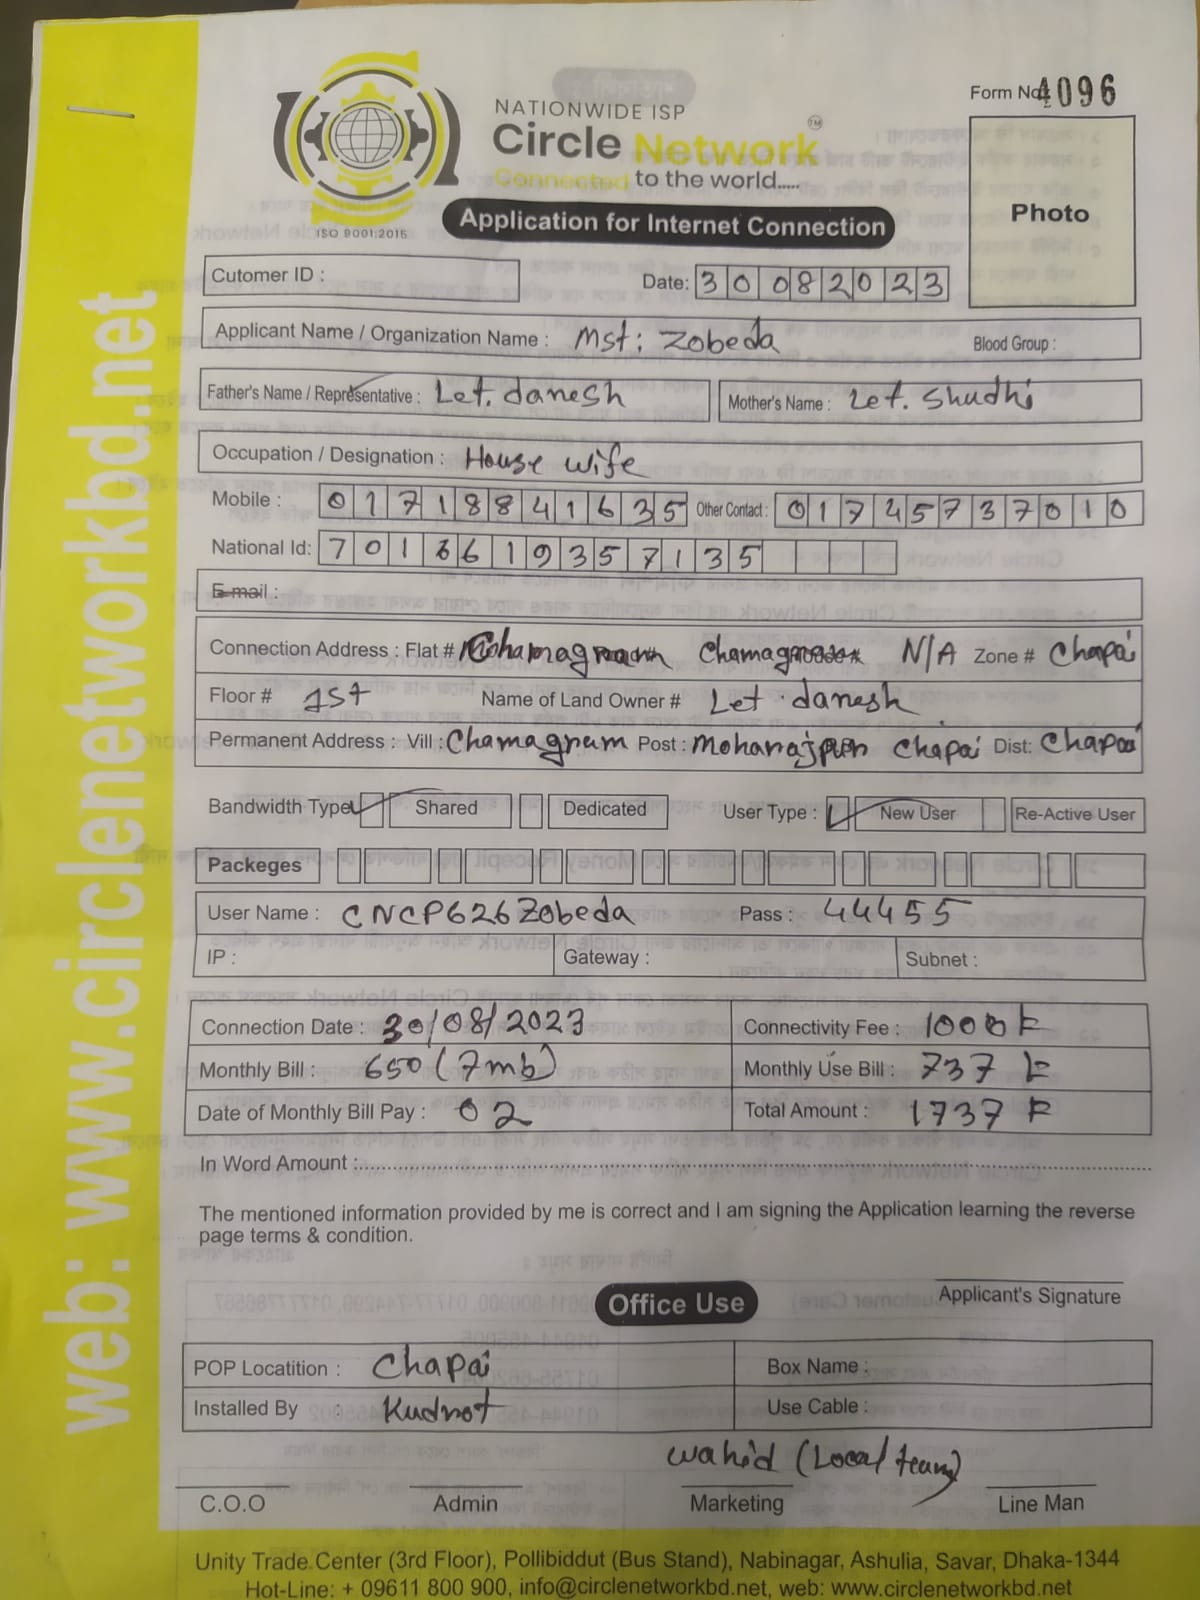 Form No. 4096
NATIONWIDE ISP
Circle Network TM
Connected to the world.....
ISO 9001:2015
Application for Internet Connection
Photo
Cutomer ID :
Date: 30082023
Applicant Name / Organization Name : Mst: Zobeda Blood Group :
Father's Name / Representative : Let. danesh Mother's Name : Let. Shudhi
Occupation / Designation : House wife
Mobile : 01718841635 Other Contact : 01745737010
National Id: 7016619357135
E-mail :
Connection Address : Flat # N/A Zone # Chapai
Floor # 1st Name of Land Owner # Let. danesh
Permanent Address : Vill : Chamagram Post : Chapai Dist: Chapai
Bandwidth Type Shared Dedicated User Type : New User Re-Active User
Packeges
User Name : CNCP626Zobeda Pass : 44455
IP : Gateway : Subnet :
Connection Date : 30/08/2023 Connectivity Fee : 1000
Monthly Bill : 650 (7mb) Monthly Use Bill : 737
Date of Monthly Bill Pay : 02 Total Amount : 1737
In Word Amount :
The mentioned information provided by me is correct and I am signing the Application learning the reverse
page terms & condition.
Applicant's Signature
Office Use
POP Locatition : Chapai Box Name :
Installed By : Kudrot Use Cable :
wahid (Local team)
C.O.O Admin Marketing Line Man
Unity Trade Center (3rd Floor), Pollibiddut (Bus Stand), Nabinagar, Ashulia, Savar, Dhaka-1344
Hot-Line: + 09611 800 900, info@circlenetworkbd.net, web: www.circlenetworkbd.net
web: www.circlenetworkbd.net